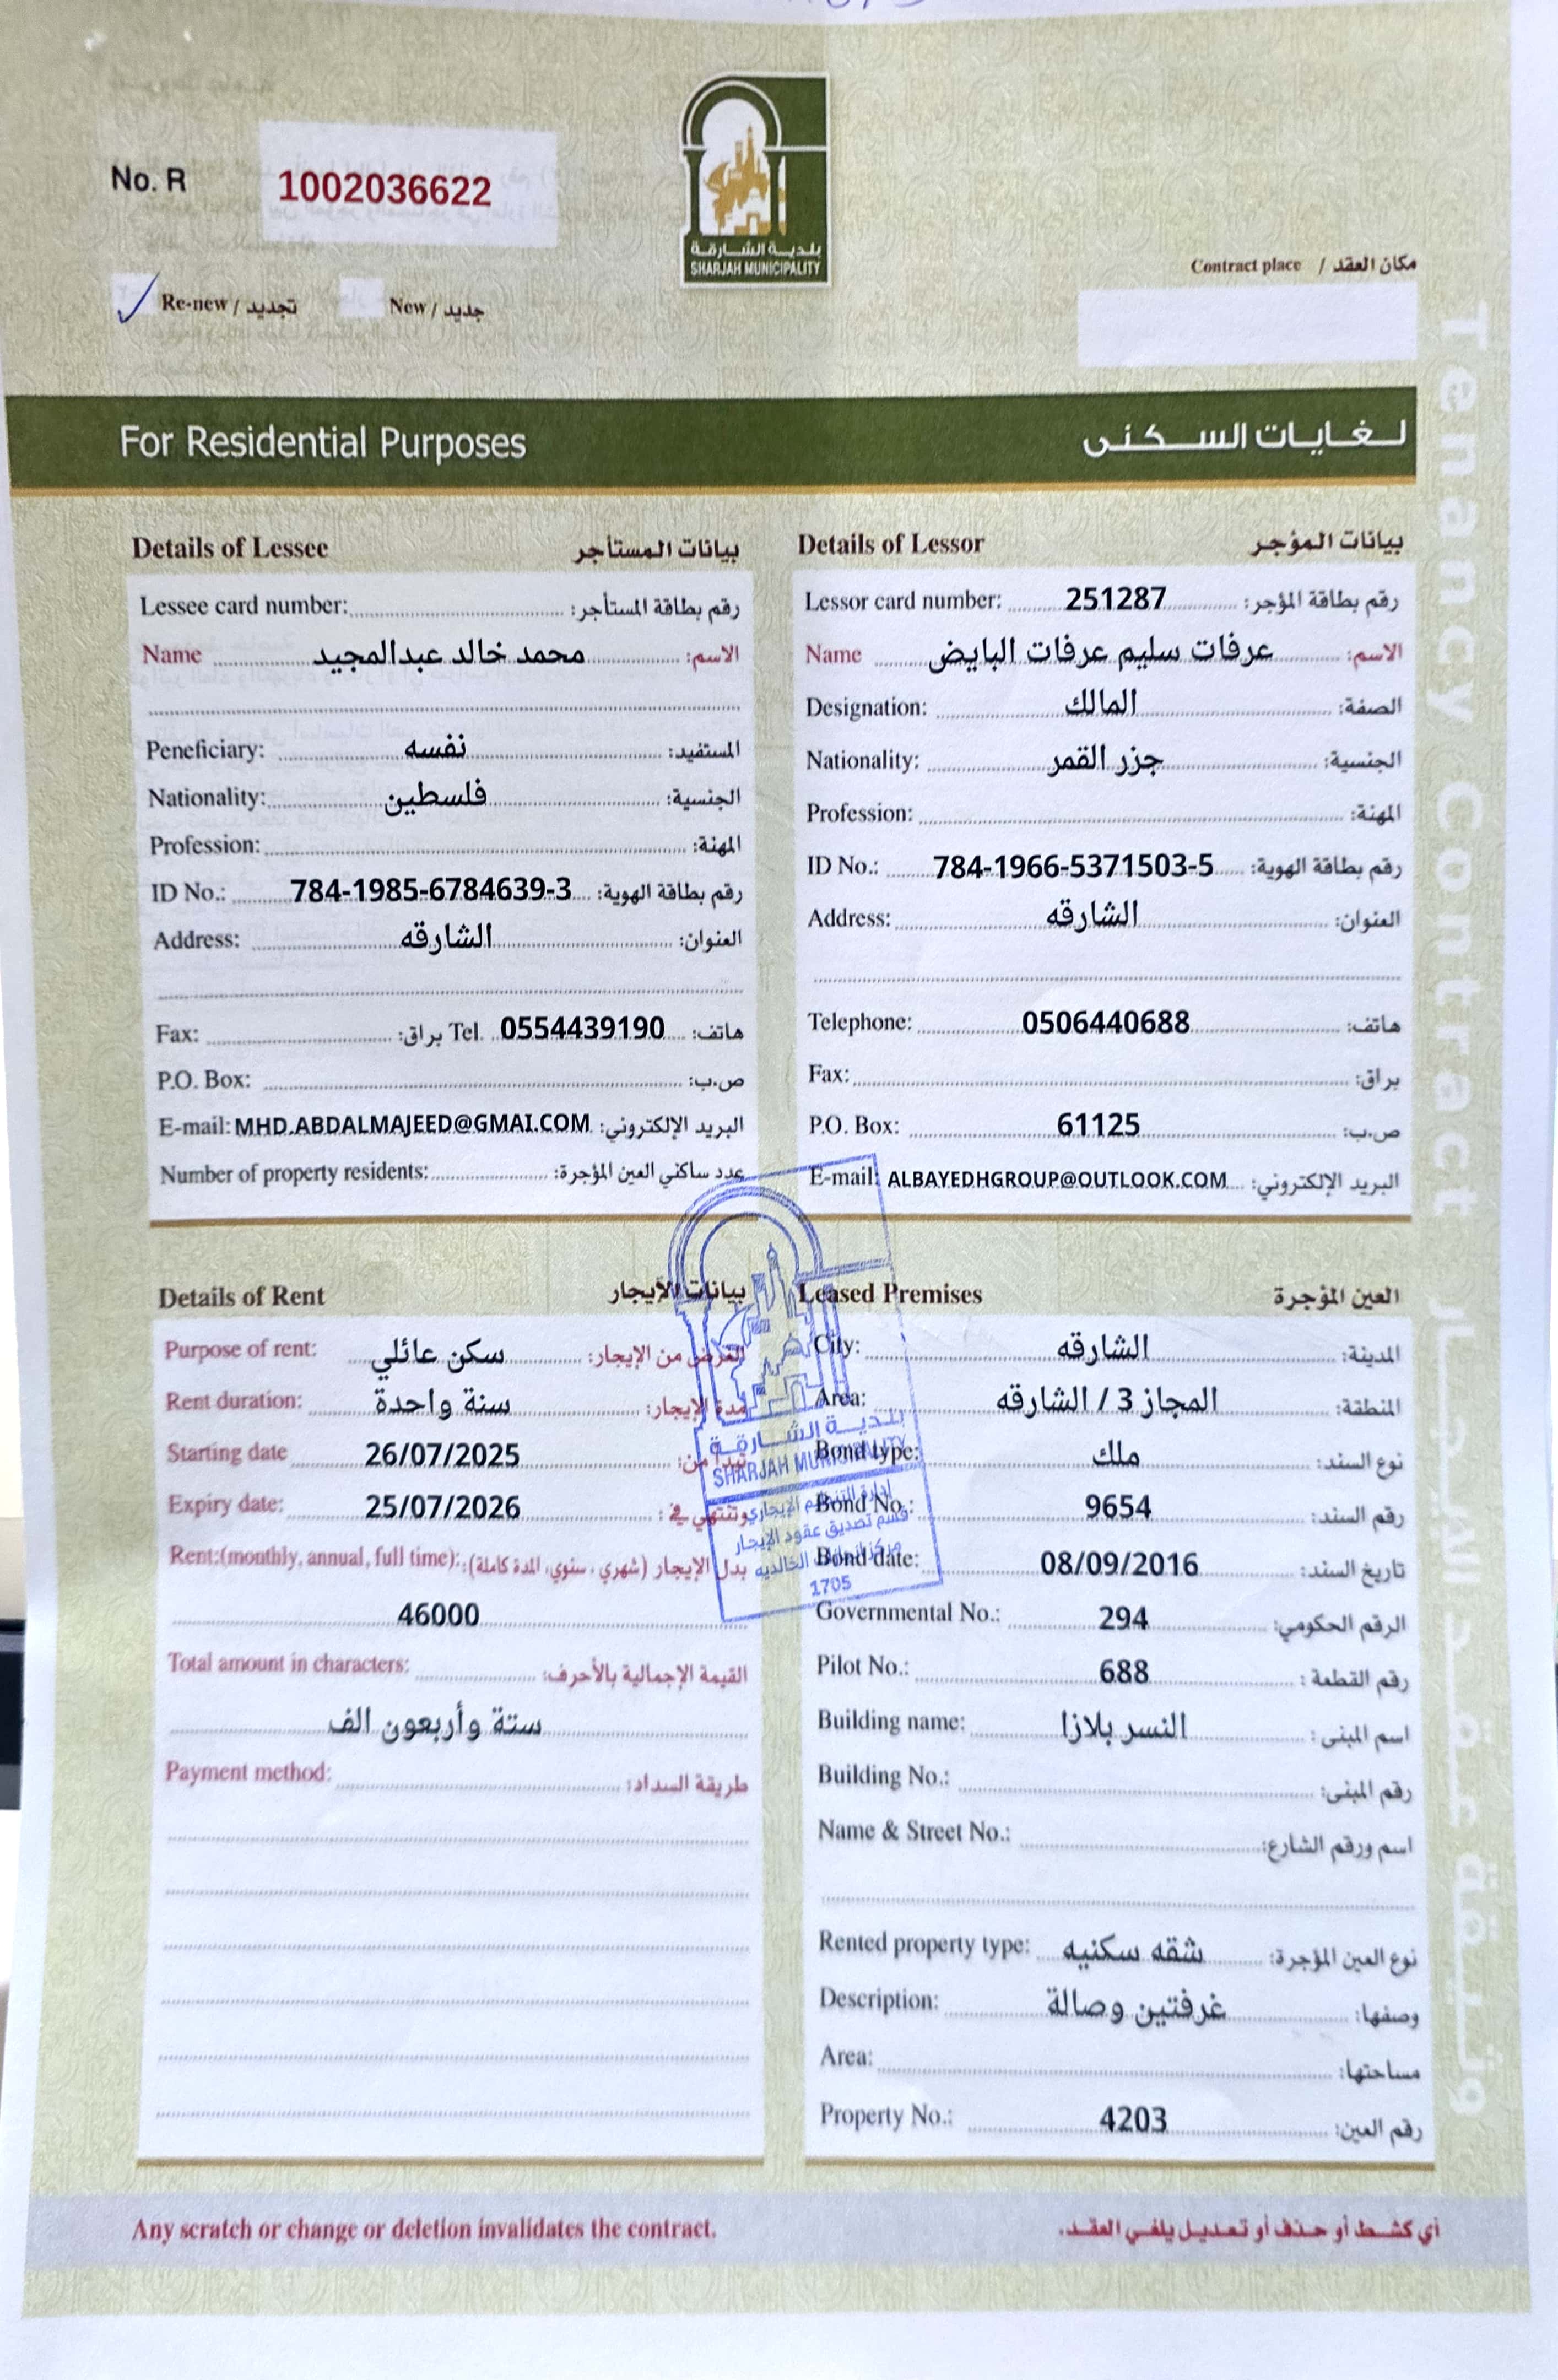 No. R 1002036622
بلدية الشارقة
SHARJAH MUNICIPALITY
Contract place / مكان العقد
Re-new / تجديد New / جديد
For Residential Purposes لغايات السكنى
Details of Lessee بيانات المستأجر
Lessee card number: رقم بطاقة المستأجر:
Name محمد خالد عبدالمجيد الاسم:
Peneficiary: نفسه المستفيد:
Nationality: فلسطين الجنسية:
Profession: المهنة:
ID No.: 784-1985-6784639-3 رقم بطاقة الهوية:
Address: الشارقه العنوان:
Fax: براق: Tel. 0554439190 هاتف:
P.O. Box: ص.ب:
E-mail: MHD.ABDALMAJEED@GMAI.COM البريد الإلكتروني:
Number of property residents: عدد ساكني العين المؤجرة:
Details of Lessor بيانات المؤجر
Lessor card number: 251287 رقم بطاقة المؤجر:
Name عرفات سليم عرفات البايض الاسم:
Designation: المالك الصفة:
Nationality: جزر القمر الجنسية:
Profession: المهنة:
ID No.: 784-1966-5371503-5 رقم بطاقة الهوية:
Address: الشارقه العنوان:
Telephone: 0506440688 هاتف:
Fax: براق:
P.O. Box: 61125 ص.ب:
E-mail: ALBAYEDHGROUP@OUTLOOK.COM البريد الإلكتروني:
Details of Rent بيانات الأيجار
Purpose of rent: سكن عائلي الغرض من الإيجار:
Rent duration: سنة واحدة مدة الإيجار:
Starting date 26/07/2025 تبدأ من:
Expiry date: 25/07/2026 وتنتهي في:
Rent:(monthly, annual, full time): بدل الإيجار (شهري، سنوي، المدة كاملة):
46000
Total amount in characters: القيمة الإجمالية بالأحرف:
ستة وأربعون الف
Payment method: طريقة السداد:
Leased Premises العين المؤجرة
City: الشارقه المدينة:
Area: المجاز 3 / الشارقه المنطقة:
Bond type: ملك نوع السند:
Bond No.: 9654 رقم السند:
Bond date: 08/09/2016 تاريخ السند:
Governmental No.: 294 الرقم الحكومي:
Pilot No.: 688 رقم القطعة :
Building name: النسر بلازا اسم المبنى :
Building No.: رقم المبنى:
Name & Street No.: اسم ورقم الشارع:
Rented property type: شقه سكنيه نوع العين المؤجرة:
Description: غرفتين وصالة وصفها:
Area: مساحتها:
Property No.: 4203 رقم العين:
بلدية الشارقة
SHARJAH MUNICIPALITY
إدارة التنظيم الإيجاري
قسم تصديق عقود الإيجار
الخالديه
1705
Any scratch or change or deletion invalidates the contract. أي كشط أو حذف أو تعديل يلغي العقد.
Tenancy Contract